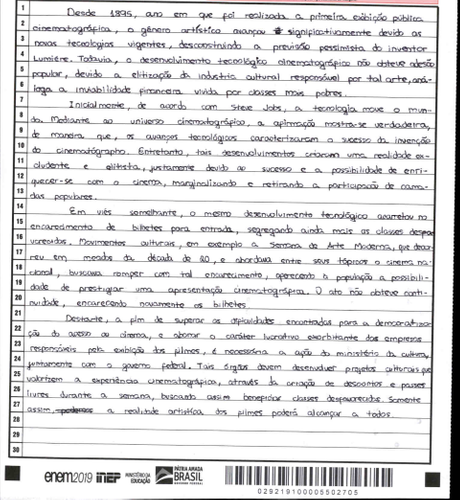 1 Desde 1895, ano em que foi realizada a primeira exibição pública
2 cinematográfica, o gênero artístico avançou significativamente devido as
3 novas tecnologias vigentes, desconstruindo a previsão pessimista do inventor
4 Lumière. Todavia, o desenvolvimento tecnológico cinematográfico não obteve adesão
5 popular, devido a elitização da industria cultural responsável por tal arte, aná-
6 loga a inviabilidade financeira vivida por classes mais pobres.
7 Inicialmente, de acordo com Steve Jobs, a tecnologia move o mun-
8 do. Mediante ao universo cinematográfico, a afirmação mostra-se verdadeira,
9 de maneira que, os avanços tecnológicos caracterizaram o sucesso da invenção
10 do cinematógrafo. Entretanto, tais desenvolvimentos criaram uma realidade ex-
11 cludente e elitista, justamente devido ao sucesso e a possibilidade de enri-
12 quecer-se com o cinema, marginalizando e retirando a participação de cama-
13 das populares.
14 Em viés semelhante, o mesmo desenvolvimento tecnológico acarretou no
15 encarecimento de bilhetes para entrada, segregando ainda mais as classes desfa-
16 vorecidas. Movimentos culturais, em exemplo a Semana de Arte Moderna, que ocor-
17 reu em meados da década de 20, e abordava entre seus tópicos o cinema na-
18 cional, buscava romper com tal encarecimento, oferecendo a população a possibili-
19 dade de prestigiar uma apresentação cinematográfica. O ato não obteve conti-
20 nuidade, encarecendo novamente os bilhetes.
21 Destarte, a fim de superar as dificuldades encontradas para a democratiza-
22 ção do acesso ao cinema, e abonar o caráter lucrativo exorbitante das empresas
23 responsáveis pela exibição dos filmes, é necessária a ação do ministério da cultura,
24 juntamente com o governo federal. Tais órgãos devem desenvolver projetos culturais que
25 valorizem a experiência cinematográfica, através da criação de descontos e passes
26 livres durante a semana, buscando assim beneficiar classes desfavorecidas. Somente
27 assim, a realidade artística dos filmes poderá alcançar a todos.
28
29
30
enem2019 inep MINISTÉRIO DA EDUCAÇÃO PÁTRIA AMADA BRASIL GOVERNO FEDERAL
029219100005502705